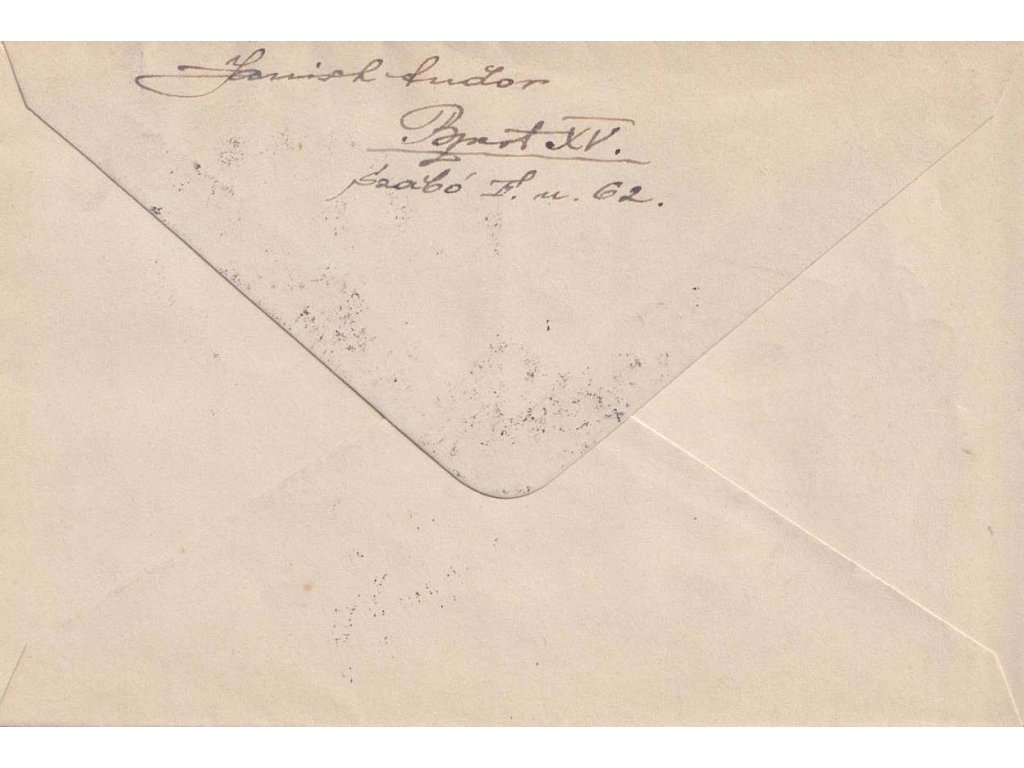 Janisch Andor
Bpest XV.
Szabó F. u. 62.